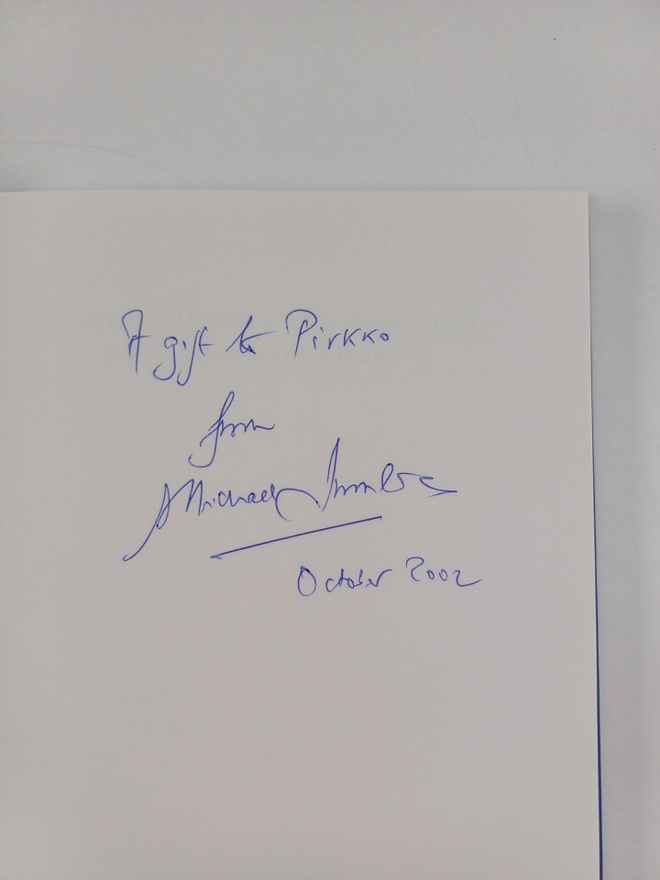 A gift to Pirkko
from
Michael
October 2002